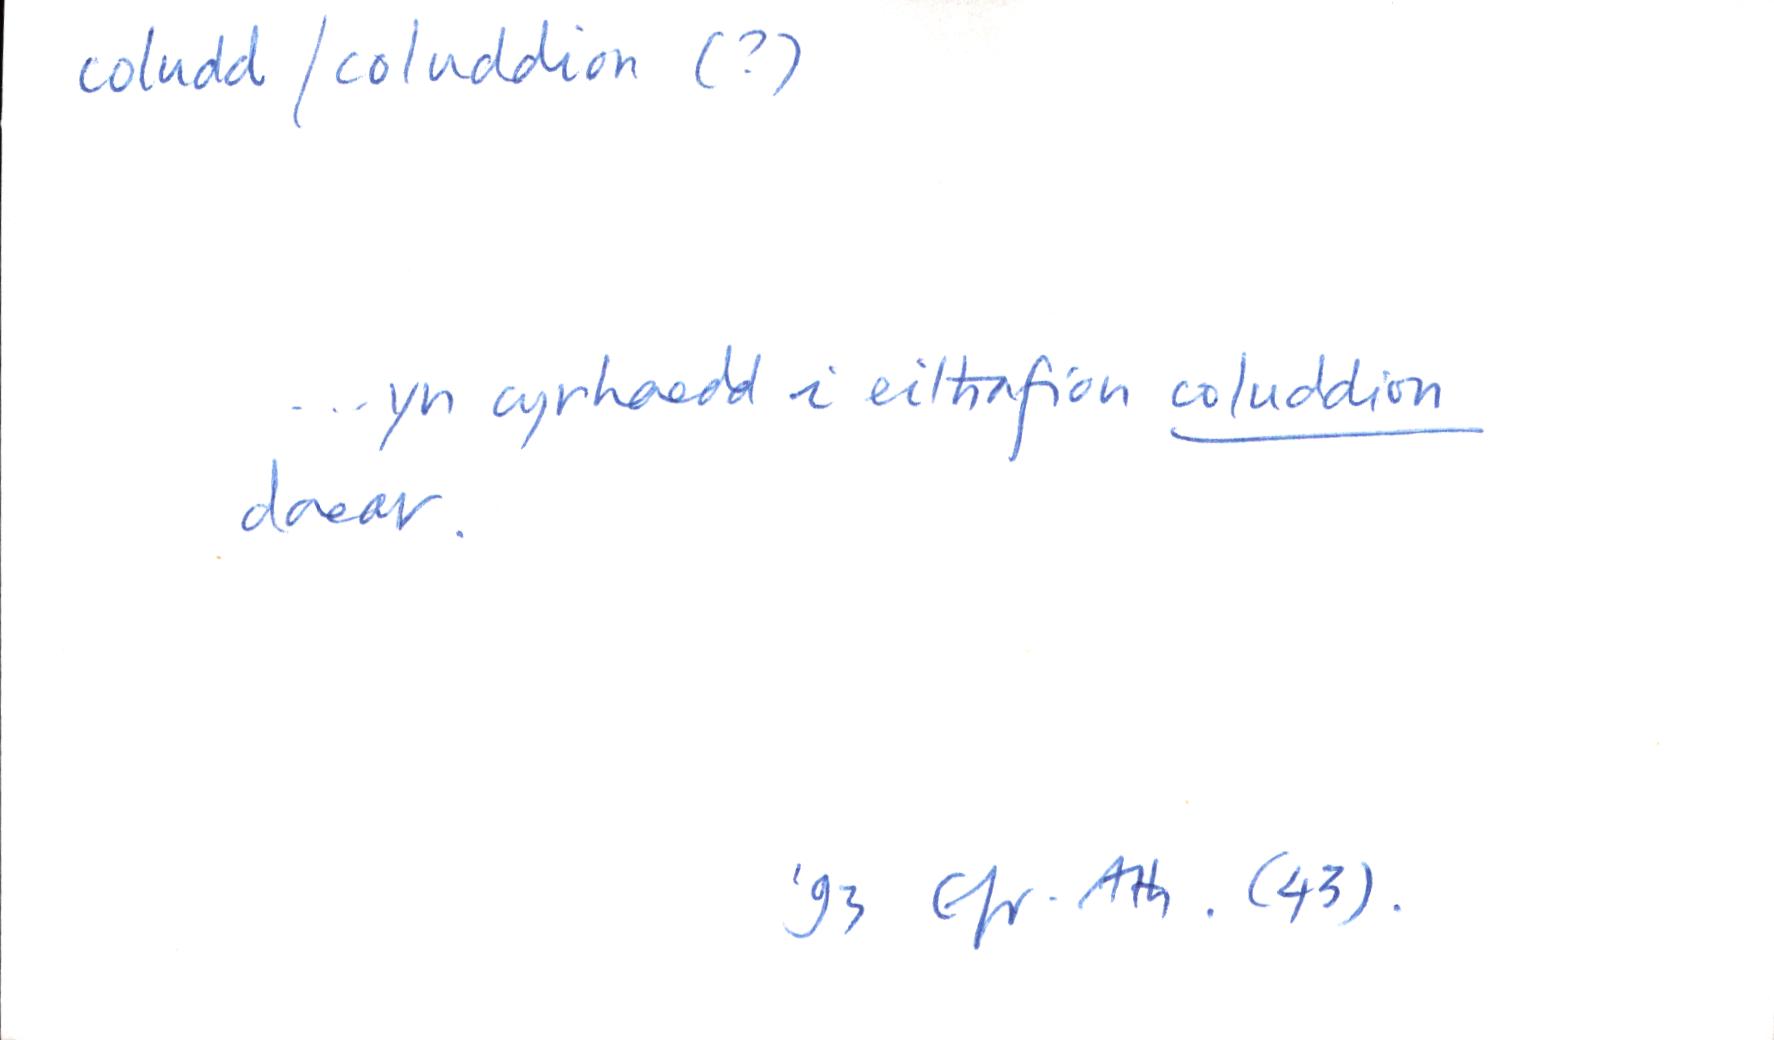 coludd / coluddion (?)
...yn cyrhaedd i eithafion coluddion
daear.
'93 Efr. Ath. (43).